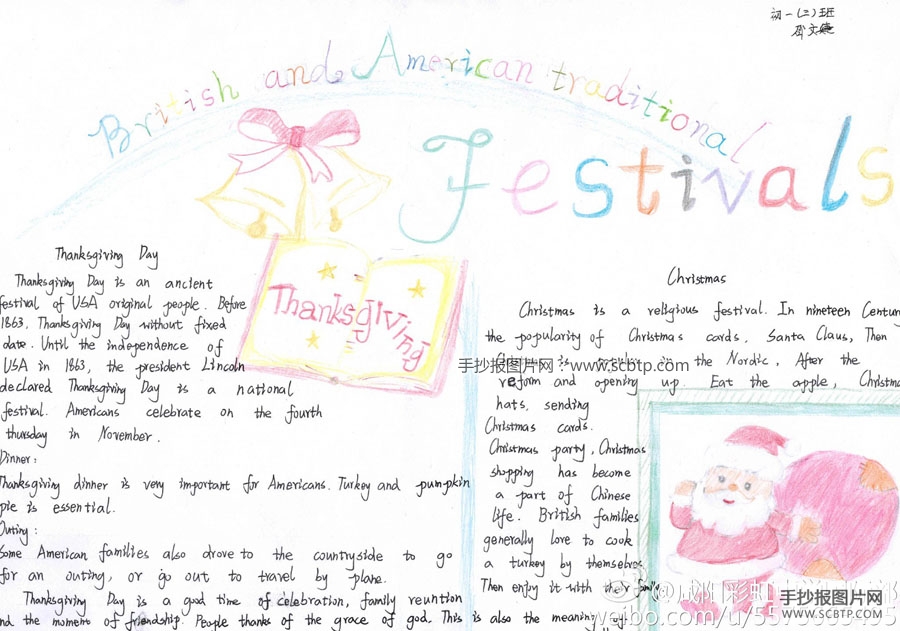 初一(三)班
British and American traditional
Festivals
Thanksgiving
Thanksgiving Day
Thanksgiving Day is an ancient
festival of USA original people. Before
1863, Thanksgiving Day without fixed
date. Until the independence of
USA in 1863, the president Lincoln
declared Thanksgiving Day is a national
festival. Americans celebrate on the fourth
thursday in November.
Dinner:
Thanksgiving dinner is very important for Americans. Turkey and pumpkin
pie is essential.
Outing:
Some American families also drove to the countryside to go
for an outing, or go out to travel by plane.
Thanksgiving Day is a good time of celebration, family reuntion
and the moment of friendship. People thanks of the grace of god. This is also the meaning of
Christmas
Christmas is a religious festival. In nineteen Century
the popularity of Christmas cards, Santa Claus, Then
is in the Nordic, After the
reform and opening up. Eat the apple, Christmas
hats, sending
Christmas cards.
Christmas party, Christmas
shopping has become
a part of Chinese
life. British families
generally love to cook
a turkey by themselves
Then enjoy it with their family
手抄报图片网:www.scbtp.com
手抄报图片网
WWW.SCBTP.COM